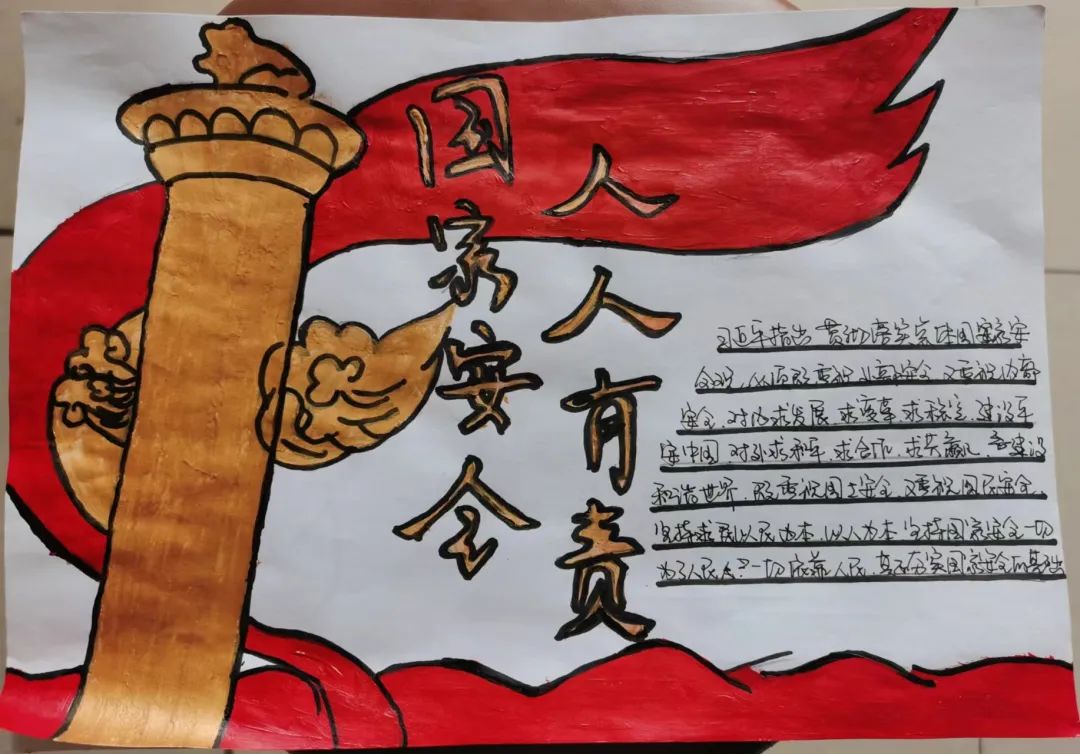 国家安全
人人有责
习近平指出 贯彻落实总体国家安
全观，必须既重视外部安全 又重视内部
安全，对内求发展、求变革、求稳定、建设平
安中国，对外求和平、求合作、求共赢、建设
和谐世界，既重视国土安全 又重视国民安全
坚持以民为本、以人为本 坚持国家安全一切
为了人民 一切依靠人民，真正夯实国家安全的基础